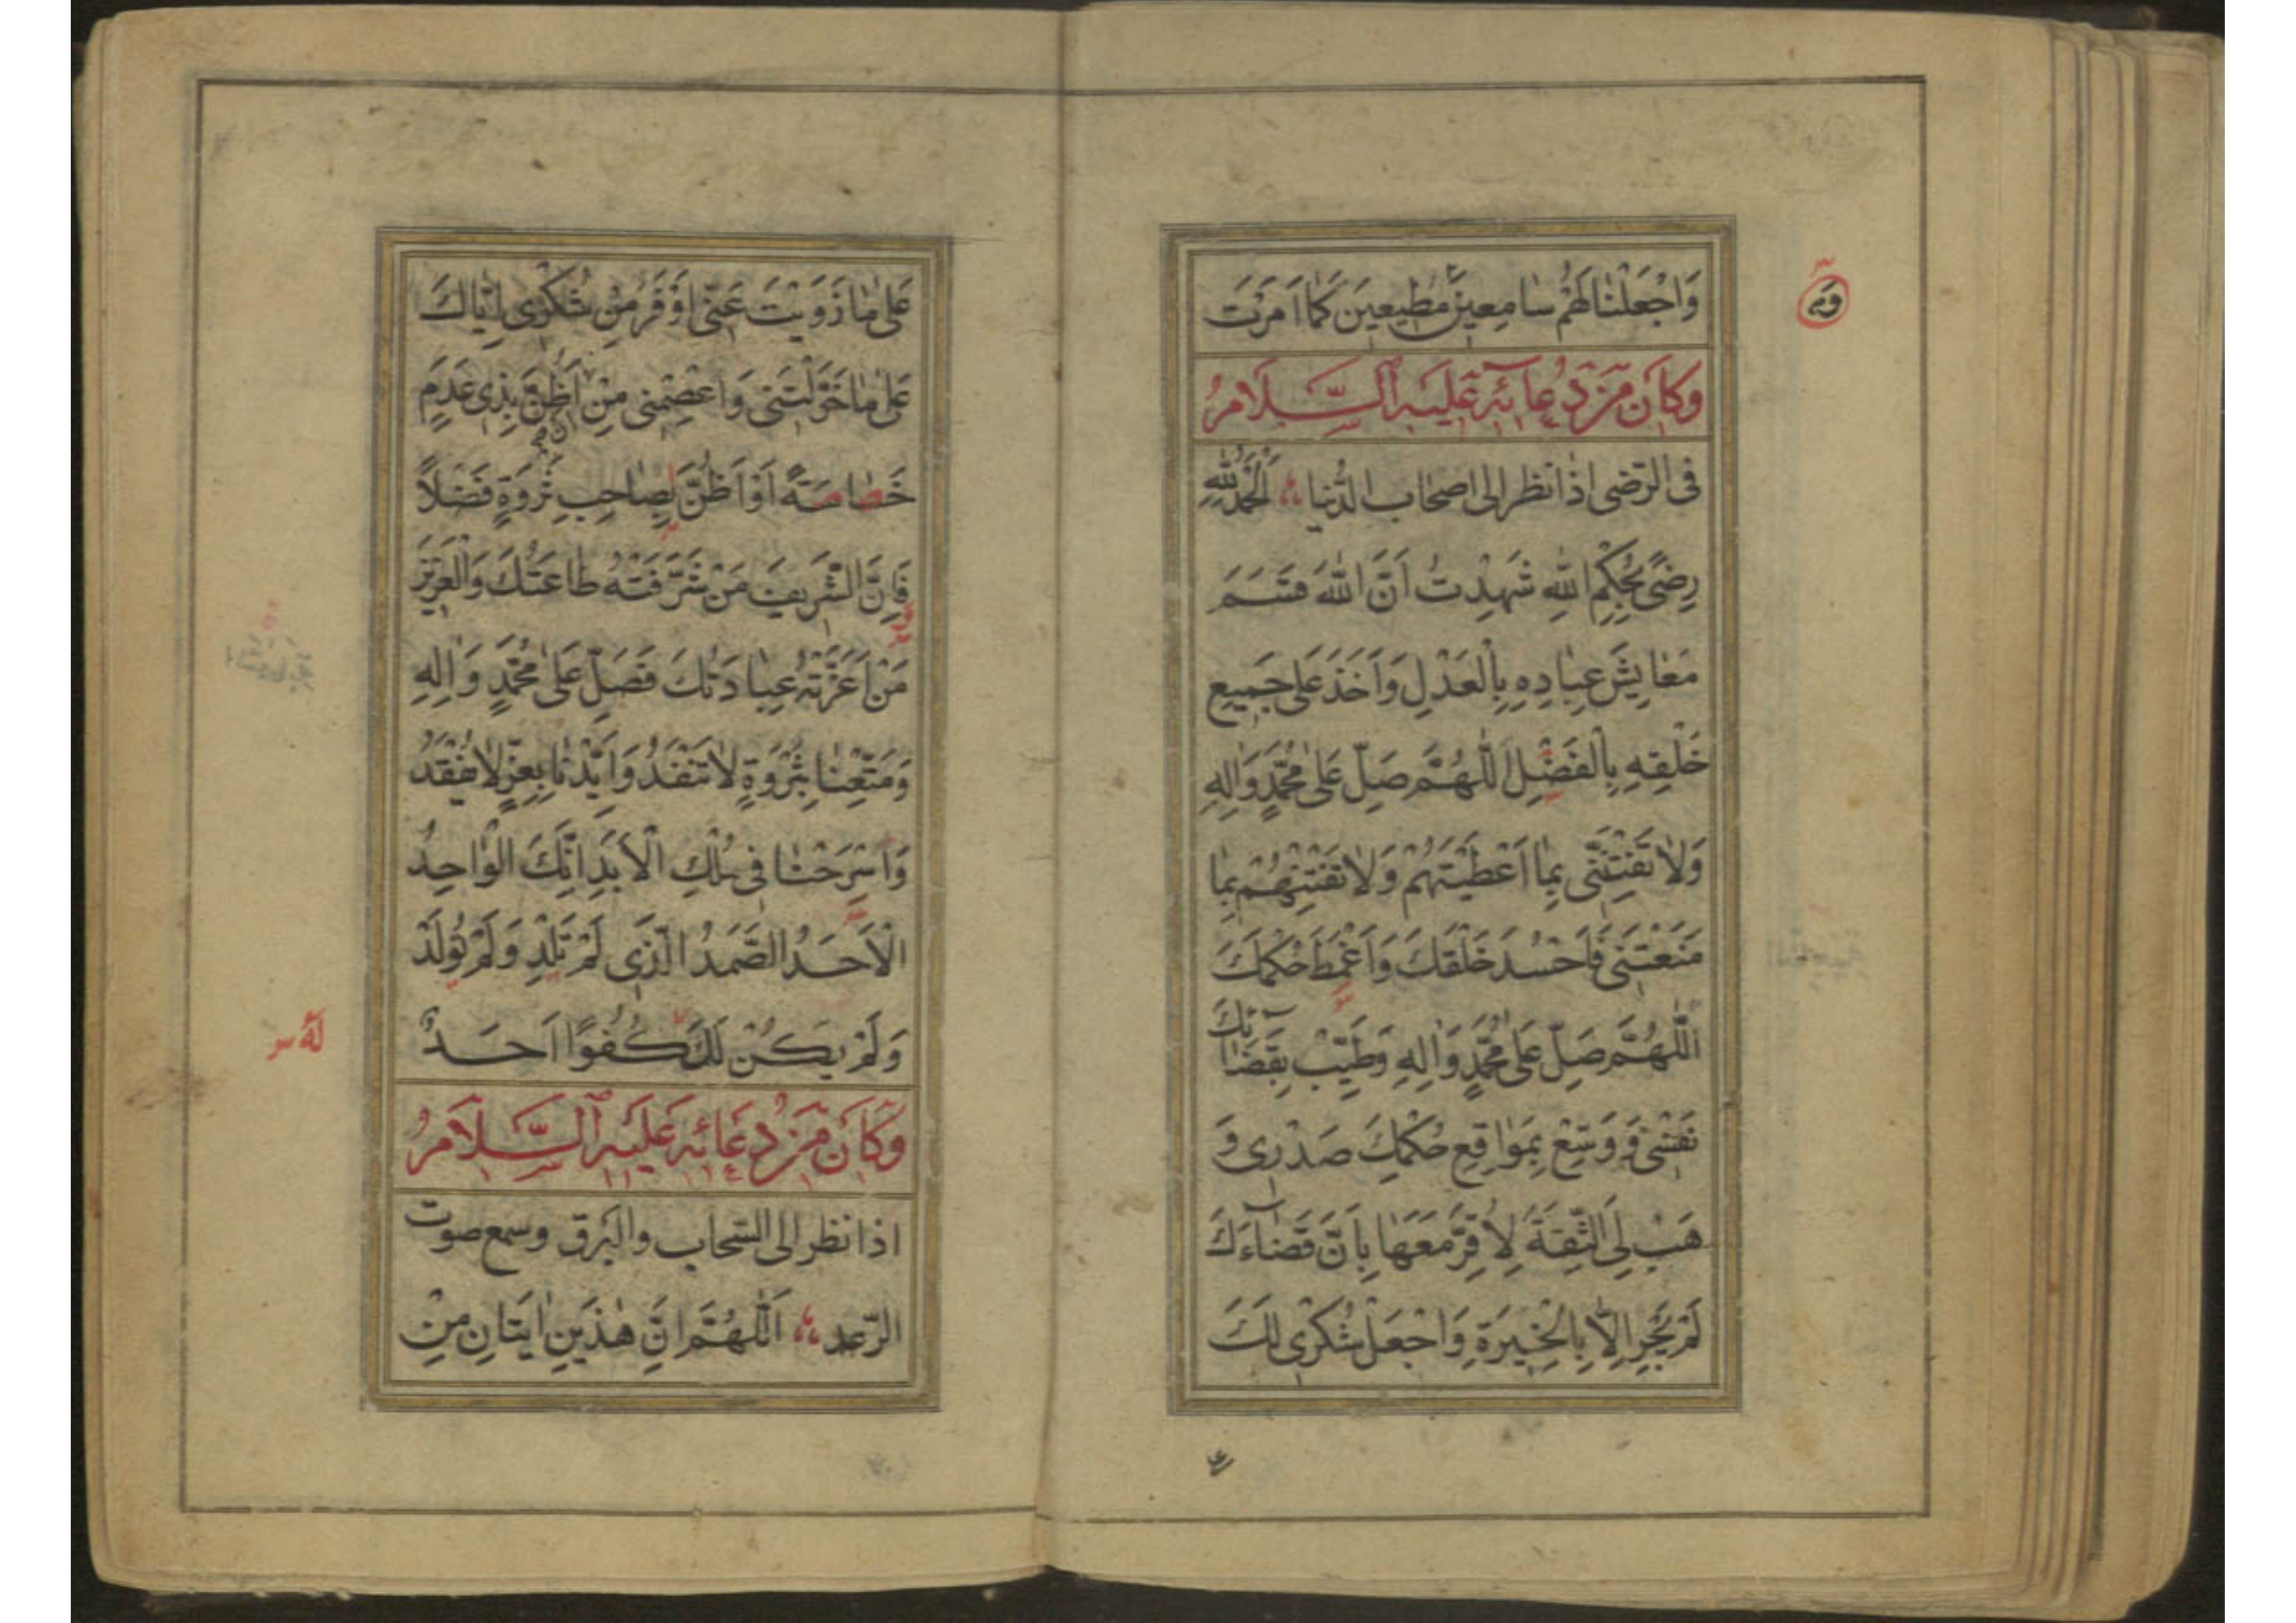 وَاجْعَلْنَا لَهُمْ سَامِعِينَ مُطِيعِينَ كَمَا اَمَرْتَ
وَكَانَ مِنْ دُعَائِهِ عَلَيْهِ السَّلَامُ
فى الرّضى اذا نظر الى اصحاب الدُّنيا اَلْحَمْدُ لِلّٰهِ
رِضًى بِحُكْمِ اللهِ شَهِدْتُ اَنَّ اللهَ قَسَمَ
مَعَايِشَ عِبَادِهِ بِالْعَدْلِ وَاَخَذَ عَلى جَمِيعِ
خَلْقِهِ بِالْفَضْلِ اَللّٰهُمَّ صَلِّ عَلى مُحَمَّدٍ وَاٰلِهِ
وَلَا تَفْتِنِّى بِمَا اَعْطَيْتَهُمْ وَلَا تَفْتِنْهُمْ بِمَا
مَنَعْتَنِى فَاَحْسُدَ خَلْقَكَ وَاَغْمِطَ حُكْمَكَ
اَللّٰهُمَّ صَلِّ عَلى مُحَمَّدٍ وَاٰلِهِ وَطَيِّبْ بِقَضَائِكَ
نَفْسِى وَ وَسِّعْ بِمَوَاقِعِ حُكْمِكَ صَدْرِى وَ
هَبْ لِىَ الثِّقَةَ لِاُقِرَّ مَعَهَا بِاَنَّ قَضَاءَكَ
لَمْ يَجْرِ اِلَّا بِالْخِيَرَةِ وَاجْعَلْ شُكْرِى لَكَ
عَلى مَا زَوَيْتَ عَنِّى اَوْفَرَ مِنْ شُكْرِى اِيَّاكَ
عَلى مَا خَوَّلْتَنِى وَاعْصِمْنِى مِنْ اَنْ اَظُنَّ بِذِى عَدَمٍ
خَصَاصَةً اَوْ اَظُنَّ بِصَاحِبِ ثَرْوَةٍ فَضْلًا
فَاِنَّ الشَّرِيفَ مَنْ شَرَّفَتْهُ طَاعَتُكَ وَالْعَزِيزَ
مَنْ اَعَزَّتْهُ عِبَادَتُكَ فَصَلِّ عَلى مُحَمَّدٍ وَاٰلِهِ
وَمَتِّعْنَا بِثَرْوَةٍ لَا تَنْفَدُ وَاَيِّدْنَا بِعِزٍّ لَا يُفْقَدُ
وَاَسْرِحْنَا فِى مُلْكِ الْاَبَدِ اِنَّكَ الْوَاحِدُ
الْاَحَدُ الصَّمَدُ الَّذِى لَمْ تَلِدْ وَلَمْ تُولَدْ
وَلَمْ يَكُنْ لَكَ كُفُوًا اَحَدٌ
لَهُ
وَكَانَ مِنْ دُعَائِهِ عَلَيْهِ السَّلَامُ
اذا نظر الى السّحاب والبرق وسمع صوت
الرّعد اَللّٰهُمَّ اِنَّ هٰذَيْنِ اٰيَتَانِ مِنْ